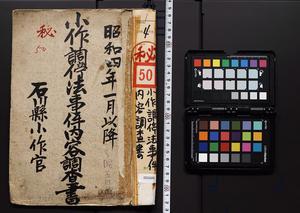 昭和四年一月以降
小作調停法事件内容調査書
石川縣小作官
秘
50
秘
50
小作調停法事件
内容調査書